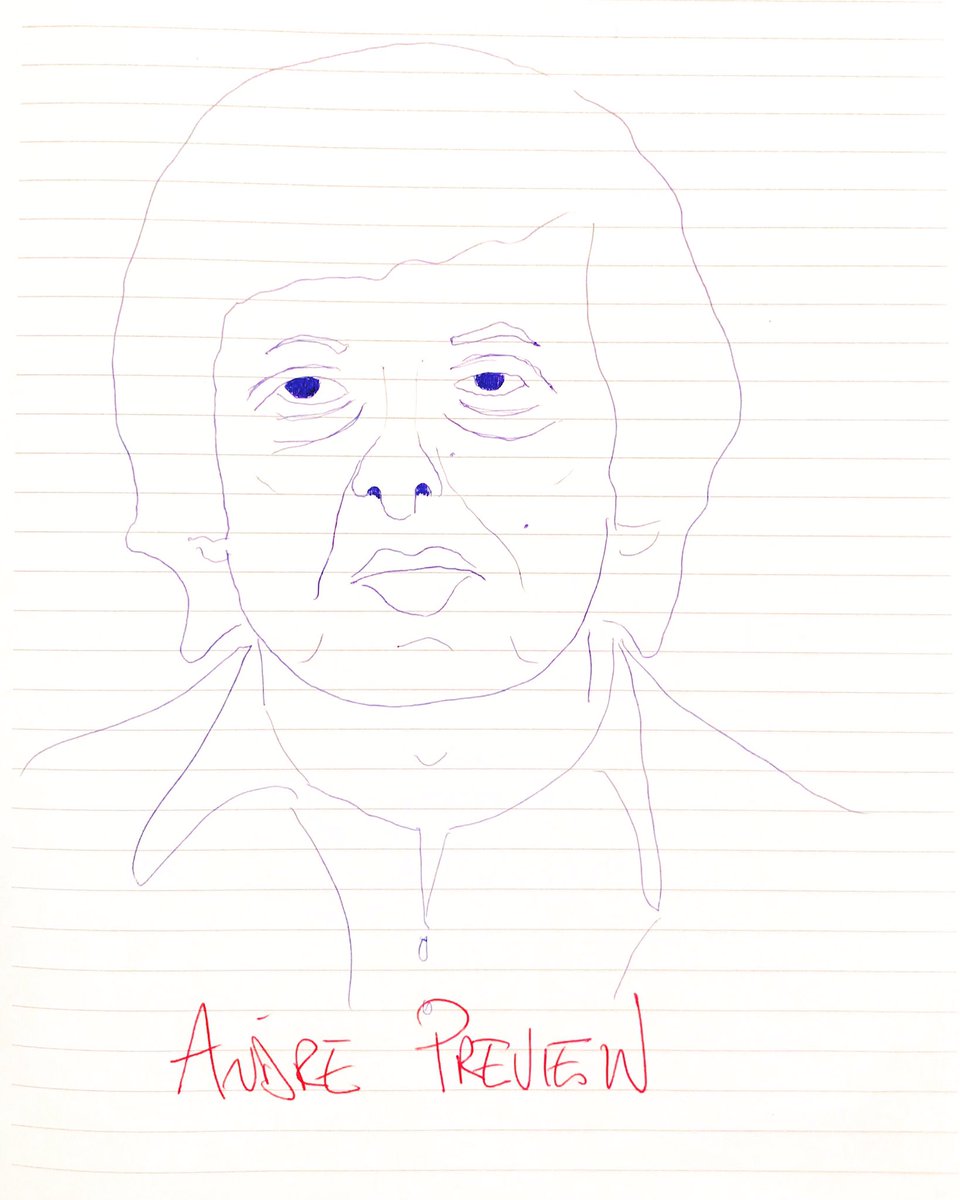 ANDRE PREVIEW